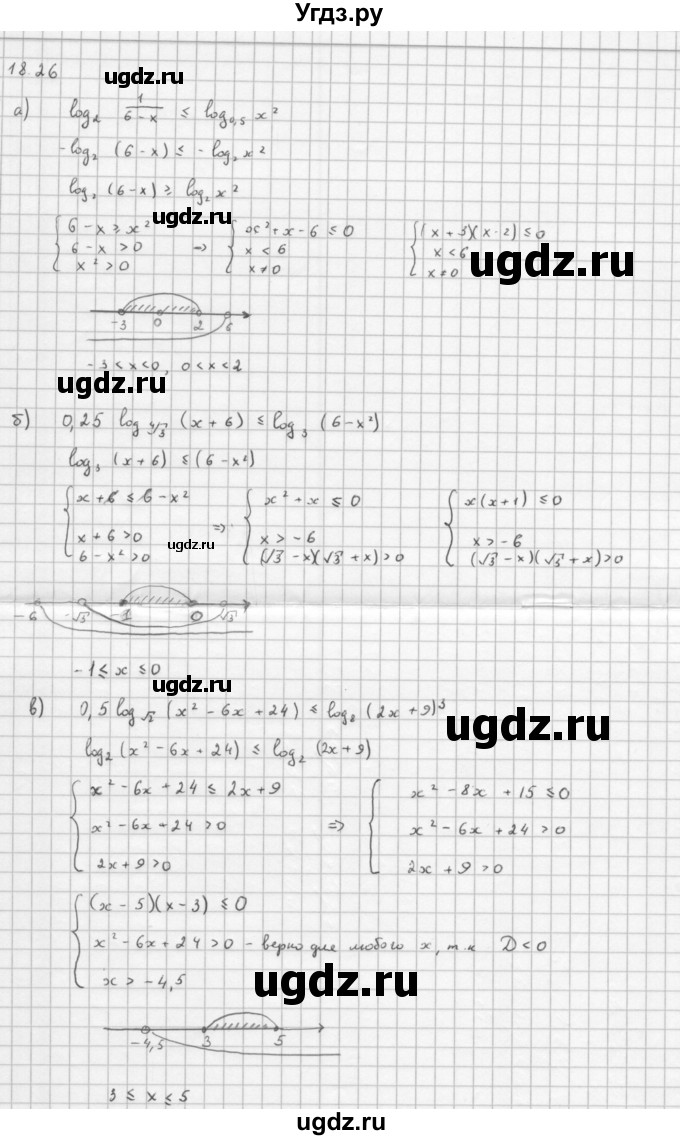 Угдз.ру
18.26
ugdz.ru
а) log₂ 1/(6-x) ≤ log₀,₅ x²
-log₂ (6-x) ≤ -log₂ x²
log₂ (6-x) ≥ log₂ x²
ugdz.ru
{ 6-x ≥ x² ⇒ { x²+x-6 ≤ 0 { (x+3)(x-2) ≤ 0
6-x > 0 x < 6 x < 6
x² > 0 x ≠ 0 x ≠ 0
ugdz.ru
-3 0 2 6
-3 < x < 0, 0 < x < 2
ugdz.ru
б) 0,25 log ⁴√3 (x+6) ≤ log₃ (6-x²)
log₃ (x+6) ≤ (6-x²)
{ x+6 ≤ 6-x² ⇒ { x²+x ≤ 0 { x(x+1) ≤ 0
x+6 > 0 x > -6 x > -6
6-x² > 0 (√3-x)(√3+x) > 0 (√3-x)(√3+x) > 0
ugdz.ru
-6 -√3 -1 0 √3
-1 ≤ x ≤ 0
ugdz.ru
в) 0,5 log√2 (x²-6x+24) ≤ log₈ (2x+9)³
log₂ (x²-6x+24) ≤ log₂ (2x+9)
{ x²-6x+24 ≤ 2x+9 ⇒ { x²-8x+15 ≤ 0
x²-6x+24 > 0 x²-6x+24 > 0
2x+9 > 0 2x+9 > 0
{ (x-5)(x-3) ≤ 0
x²-6x+24 > 0 - верно для любого x, т.к D < 0
x > -4,5
ugdz.ru
-4,5 3 5
3 ≤ x ≤ 5
ugdz.ru